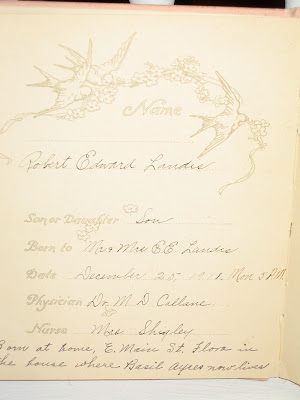 Name
Robert Edward Landis
Son or Daughter Son
Born to Mr & Mrs E.E. Landis
Date December 25, 1911, Mon 5 P.M.
Physician Dr. M D
Nurse Mrs Shigley
Born at home, E. Main St, Flora in
the house where Basil Ayres now lives